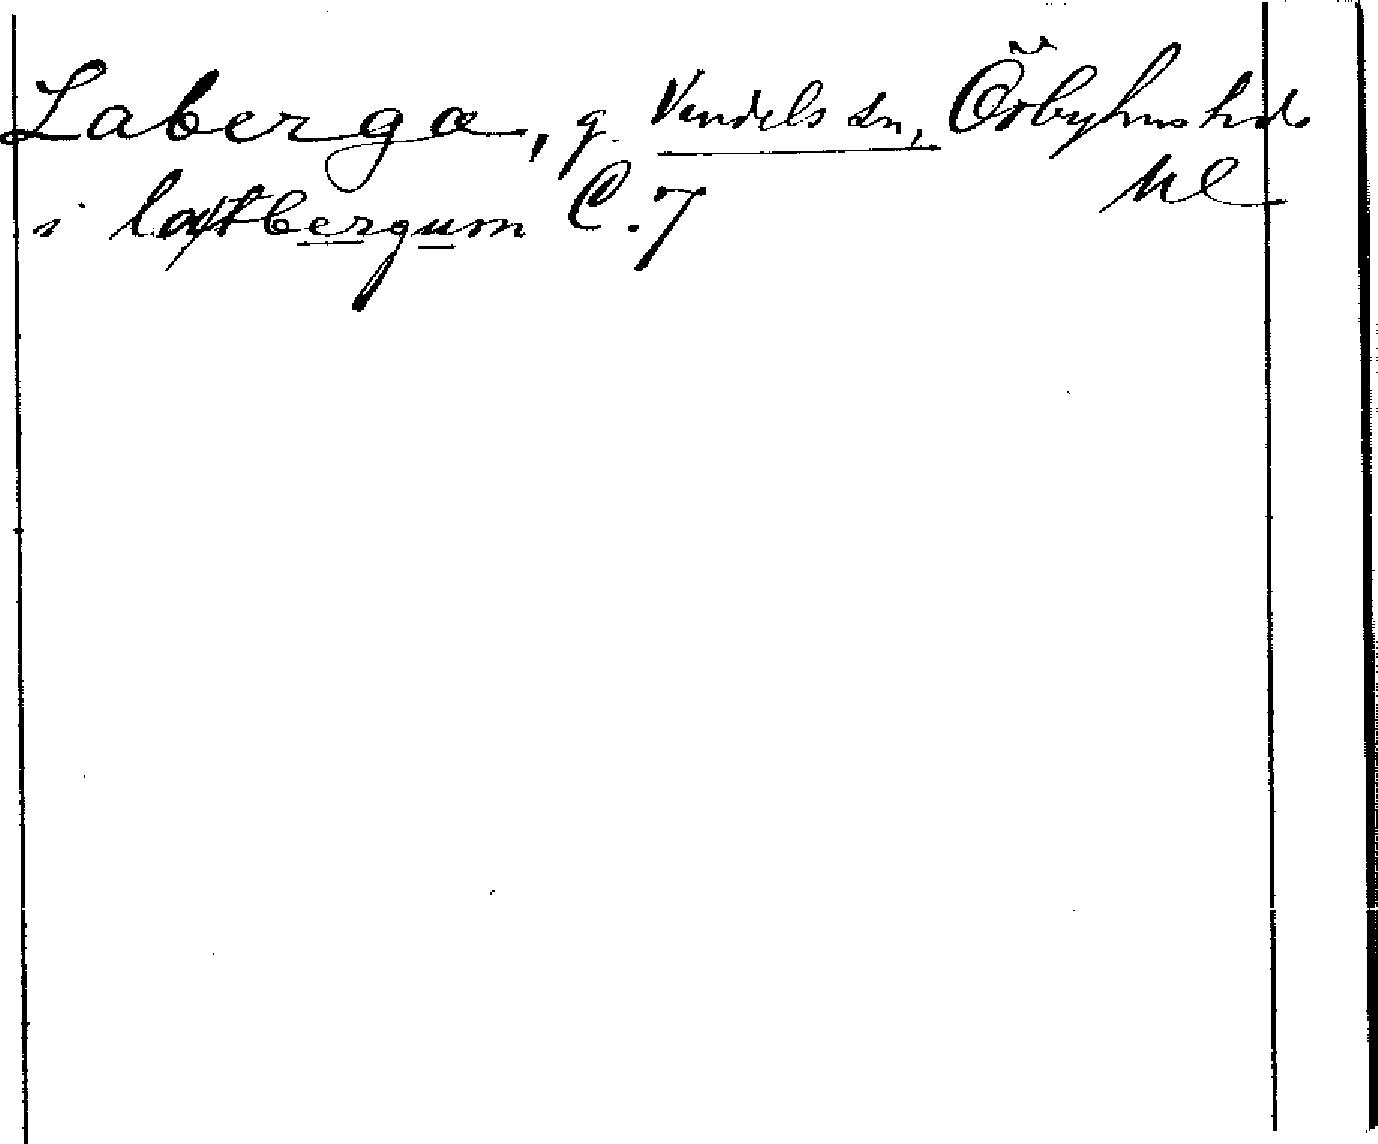 Laberga, g. Vendels sn, Örbyhus hd
i laxbergum C. 7 Ul